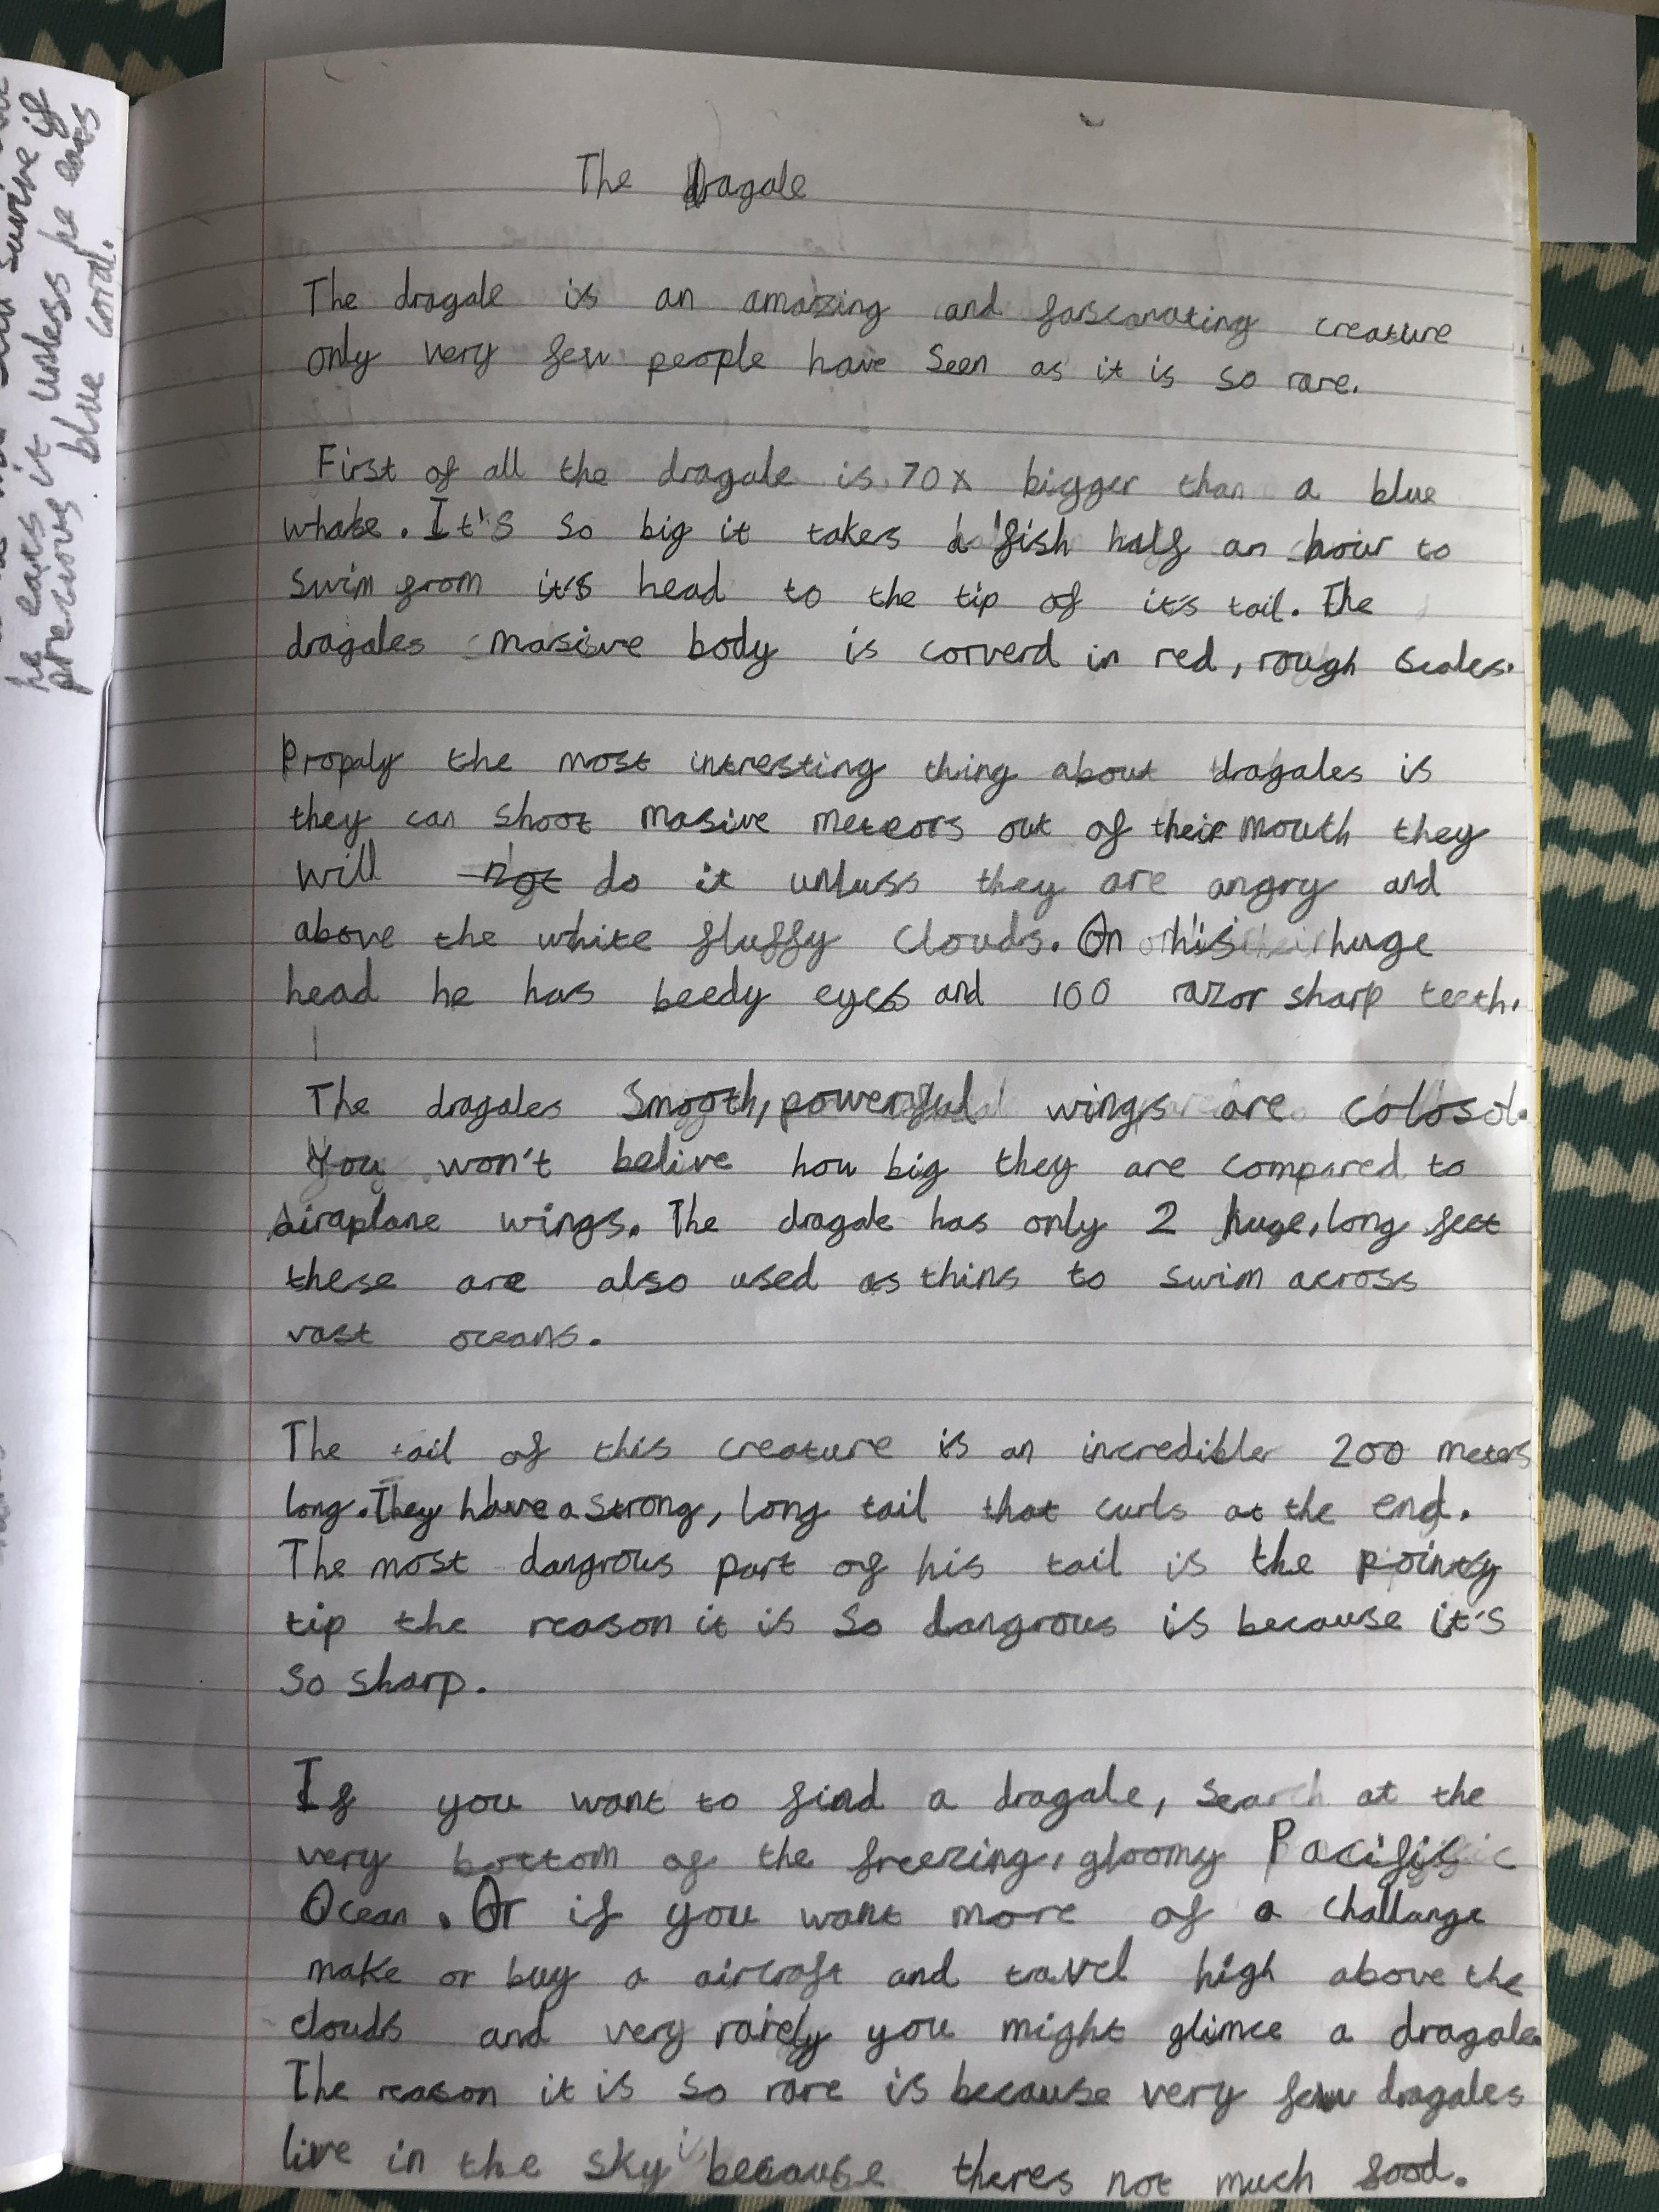 he eats it unless he eats
precious blue coral.
The Dragale
The dragale is an amazing and fascanating creature
only very few people have seen as it is so rare.
First of all the dragale is 70x bigger than a blue
whale. It's so big it takes a fish half an hour to
swim from it's head to the tip of it's tail. The
dragales masive body is corverd in red, rough scales.
Propaly the most intresting thing about dragales is
they can shoot masive meteors out of their mouth they
will not do it unluss they are angry and
above the white fluffy clouds. On his huge
head he has beedy eyes and 100 razor sharp teeth.
The dragales smooth, powerful wings are colosol.
You won't belive how big they are compared to
airaplane wings. The dragale has only 2 huge, long feet
these are also used as thins to swim across
vast oceans.
The tail of this creature is an incredible 200 meters
long. They have a strong, long tail that curls at the end.
The most dangrous part of his tail is the pointy
tip the reason it is so dangrous is because it's
so sharp.
If you want to find a dragale, search at the
very bottom of the freezing, gloomy Pacific
Ocean. Or if you want more of a challange
make or buy a aircraft and travel high above the
clouds and very rarely you might glimce a dragale.
The reason it is so rare is because very few dragales
live in the sky because theres not much food.